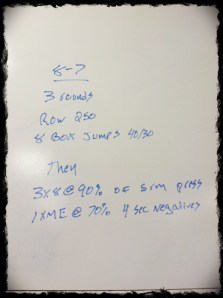 8-7
3 rounds
Row 250
8 Box Jumps 40/30
Then
3x8 @ 90% of 5rm press
1xME @ 70% 4 sec Negatives